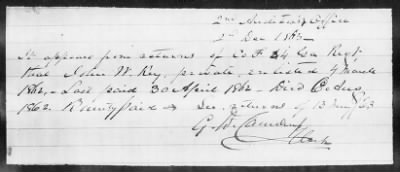 2nd Auditor's Office
2 Dec 1863
It appears from returns of Co. F 24 Ga Regt
that John W. Key, private, enlisted 4 March
1862, Last paid 30 April 1862 - Died
1862. Bounty paid See returns of 13
G. W.
Clerk